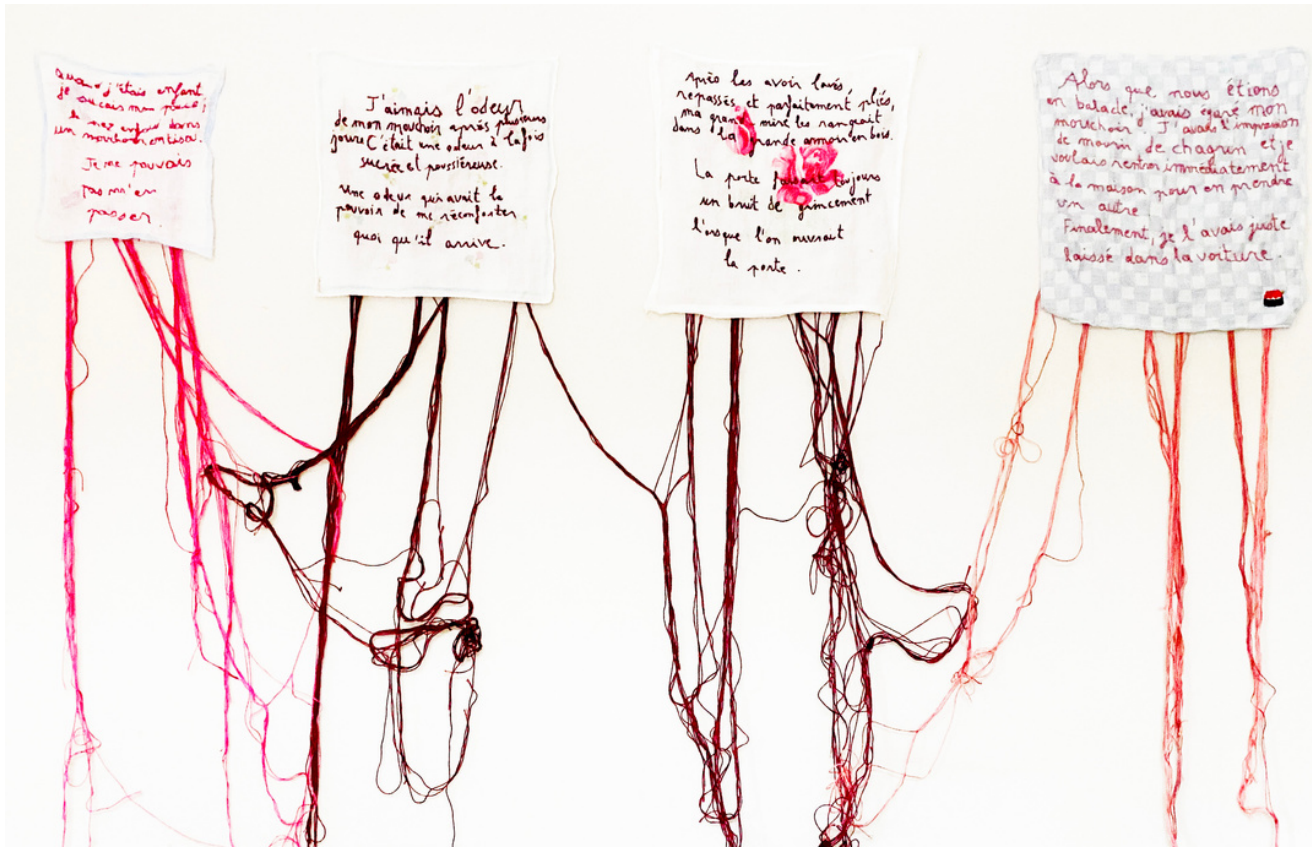 Quand j'étais enfant
je suçais mon pouce,
le nez enfoui dans
un mouchoir en tissu.
Je ne pouvais
pas m'en
passer.
J'aimais l'odeur
de mon mouchoir après plusieurs
jours C'était une odeur à la fois
sucrée et poussiéreuse.
Une odeur qui avait le
pouvoir de me réconforter
quoi qu'il arrive.
Après les avoir lavés,
repassés et parfaitement pliés,
ma grand mère les rangeait
dans la grande armoire en bois.
La porte faisait toujours
un bruit de grincement
lorsque l'on ouvrait
la porte.
Alors que nous étions
en balade, j'avais égaré mon
mouchoir. J'avais l'impression
de mourir de chagrin et je
voulais rentrer immédiatement
à la maison pour en prendre
un autre.
Finalement, je l'avais juste
laissé dans la voiture.